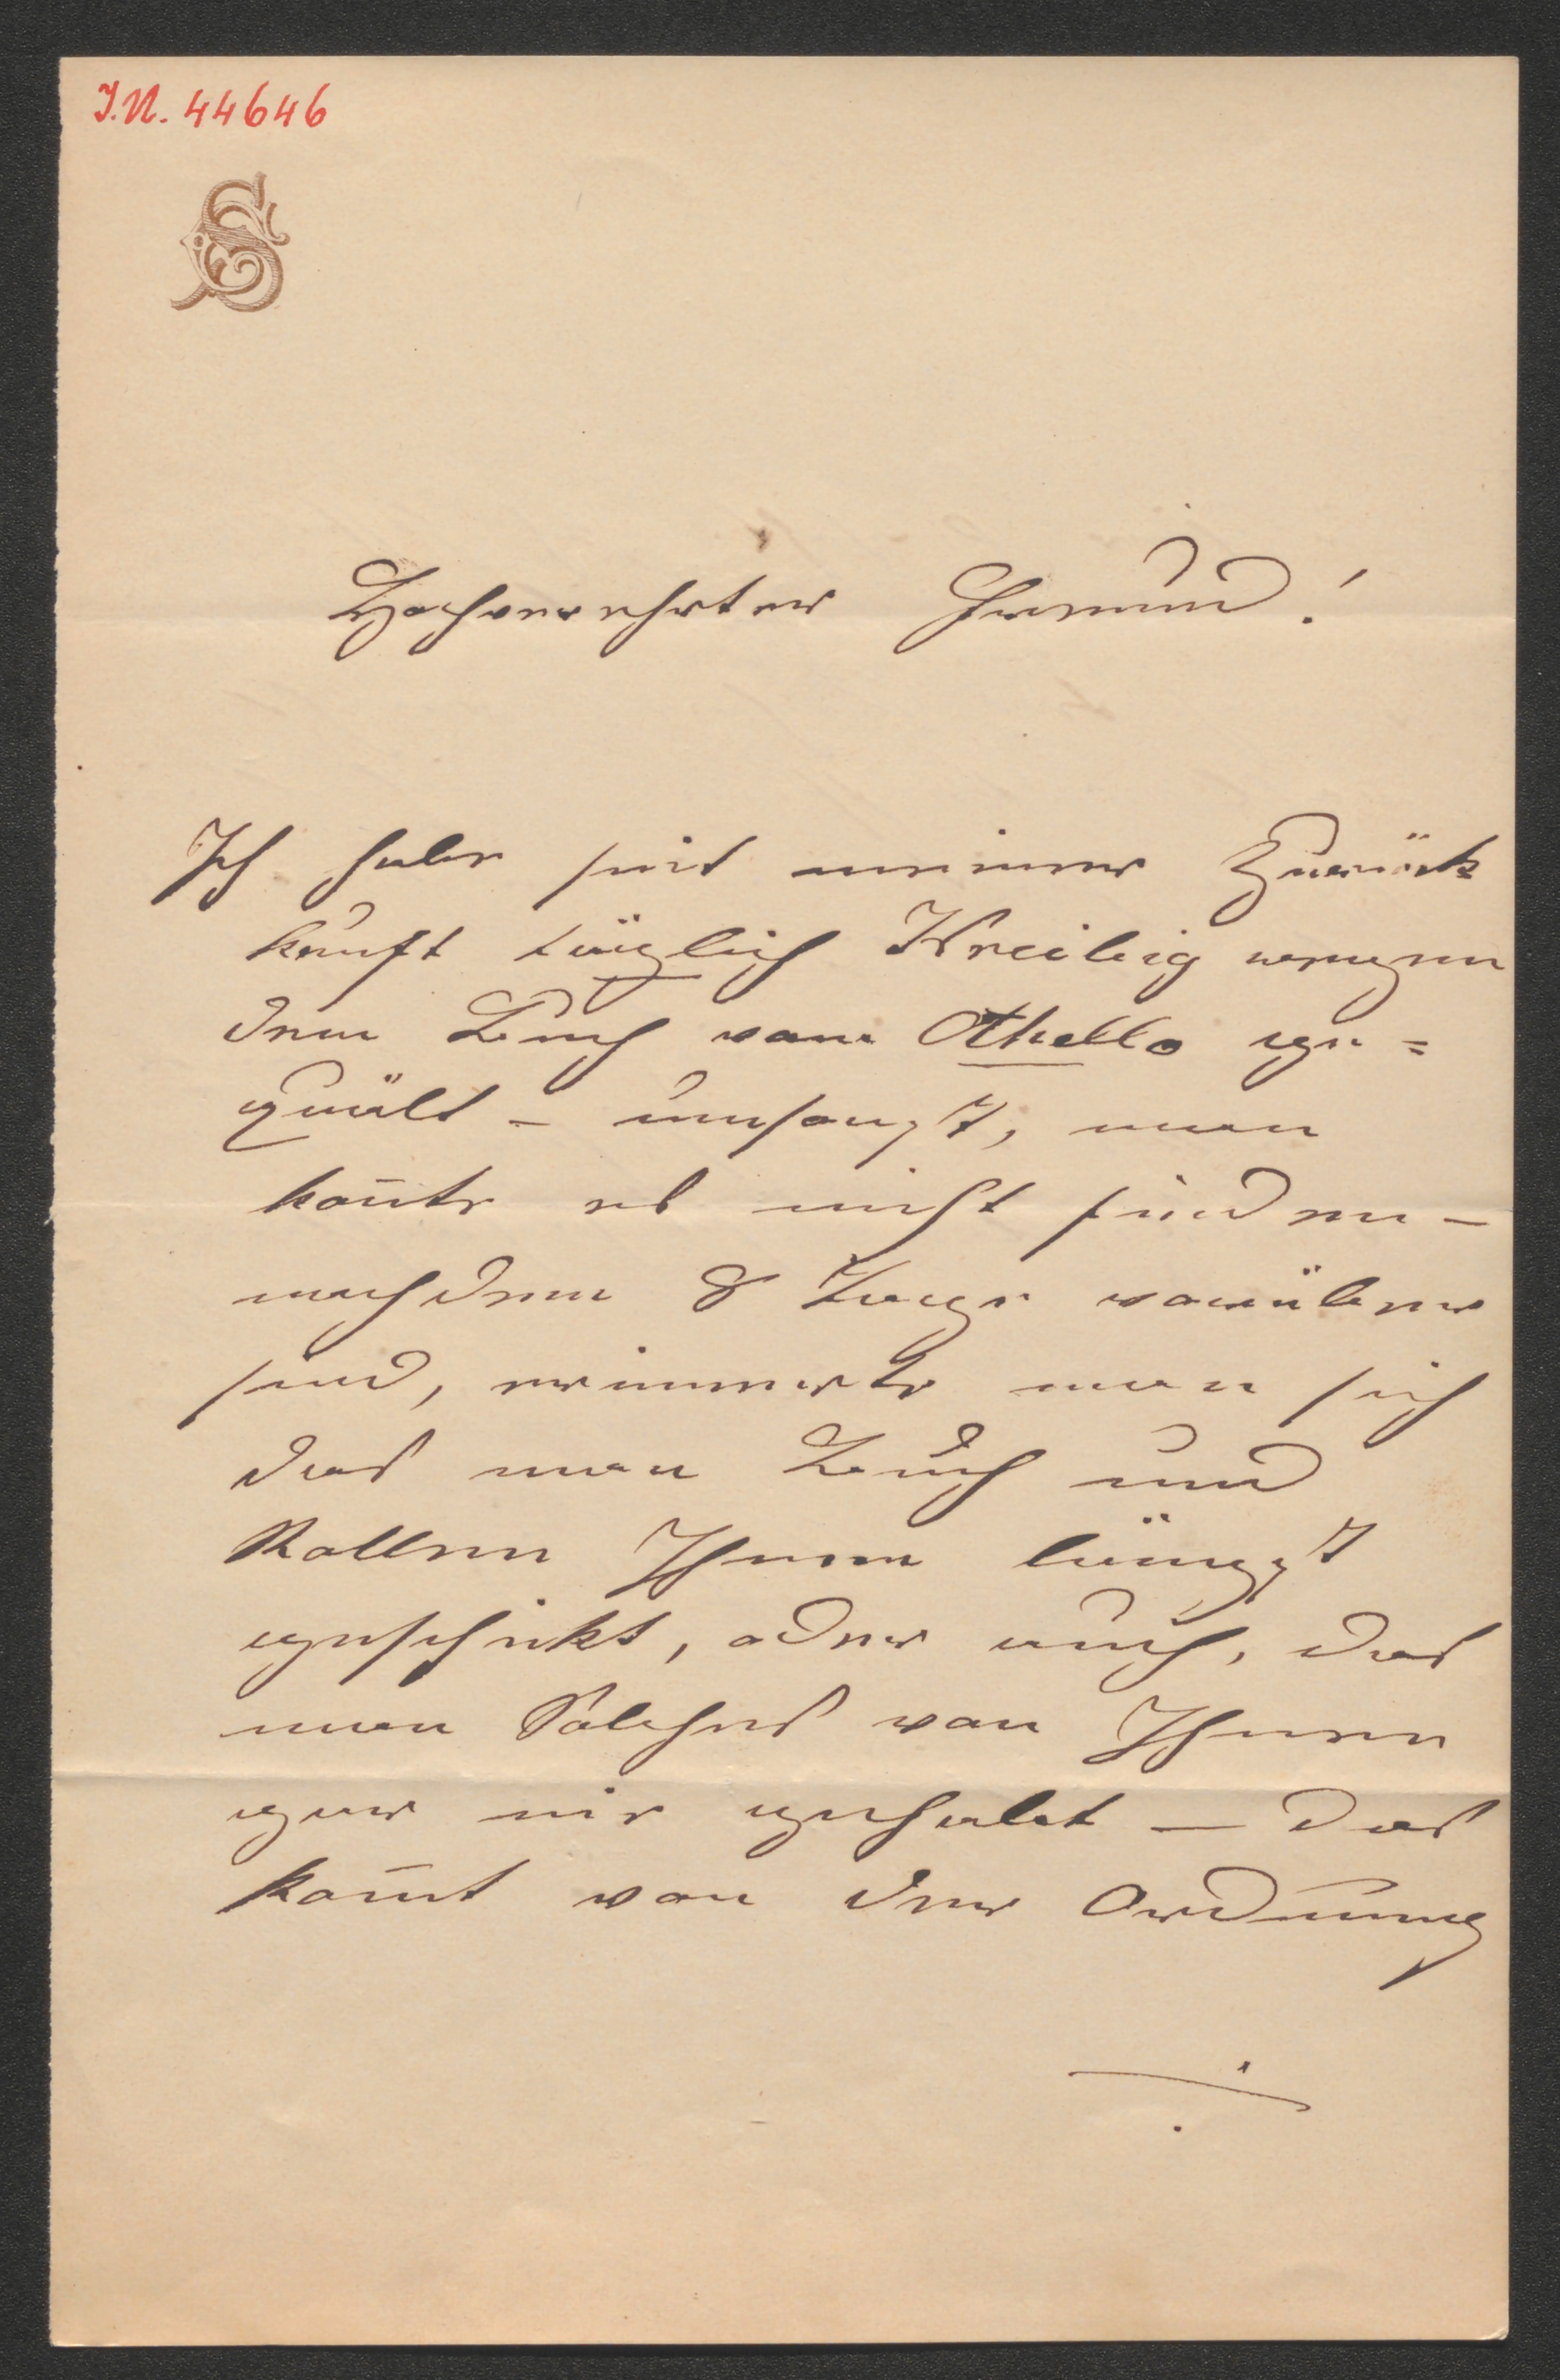 I.N. 44646
Hochverehrter Freund!
Ich habe seit meiner Zurück
kunft täglich Kreibig wegen
dem Buch vom Othello ge=
quält – umsonst, man
kon̄te es nicht finden –
nachdem 8 Tage vorüber
sind, erinnerte man sich
das man Buch und
Rollen Ihnen längst
geschikt, oder auch, das
man Solches von Ihnen
gar nie gehabt – das
kom̄t von der Ordnung